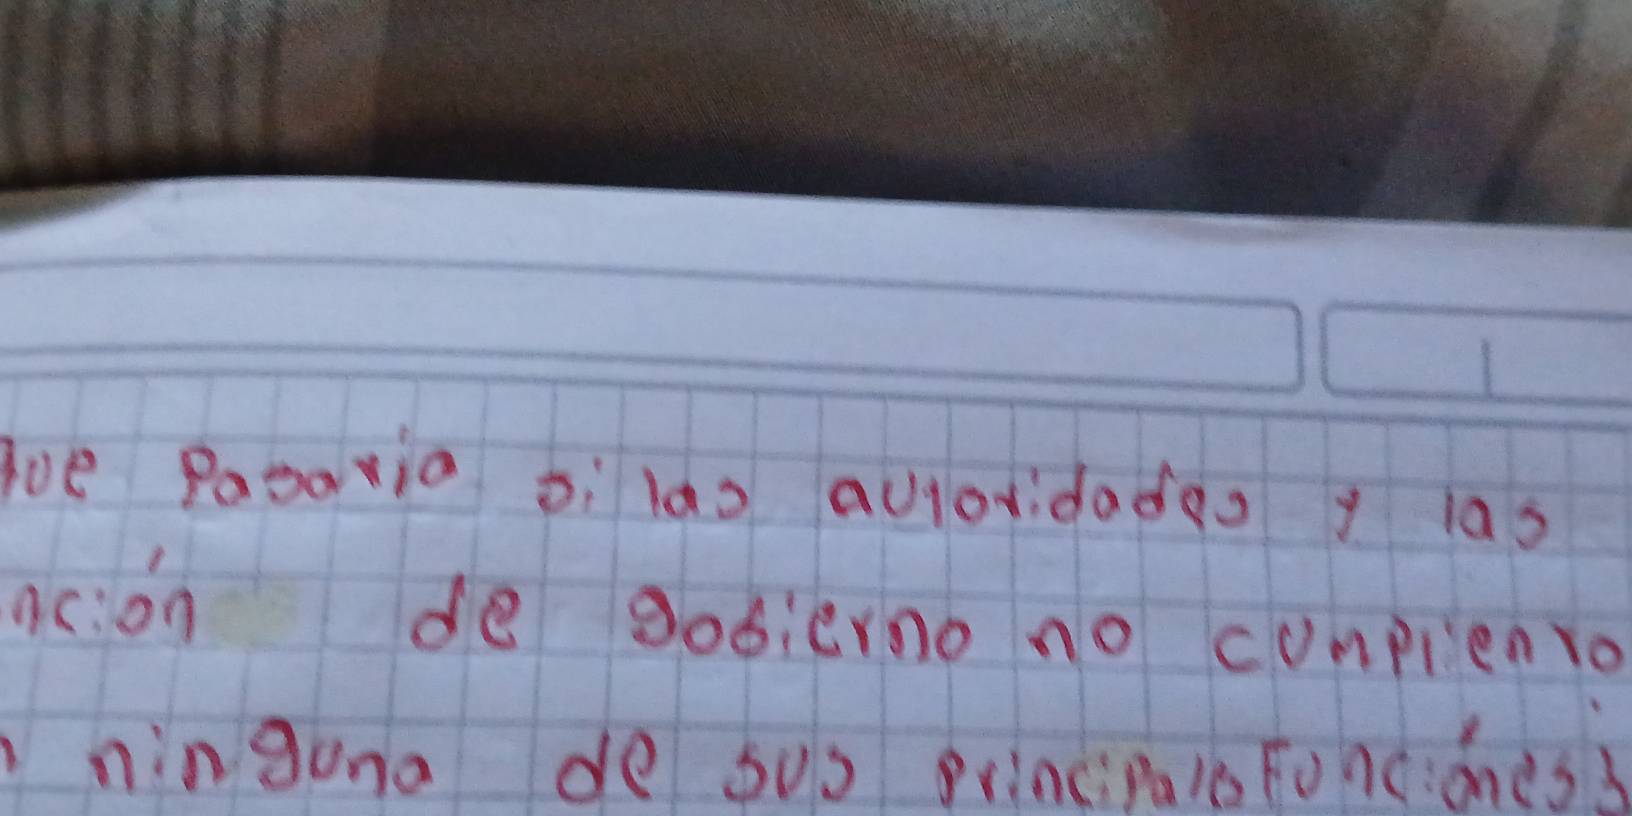 que Pasaria si las autoridades y las
nción de gobierno no cumplienro
n ninguna de sus principales Funciónes?